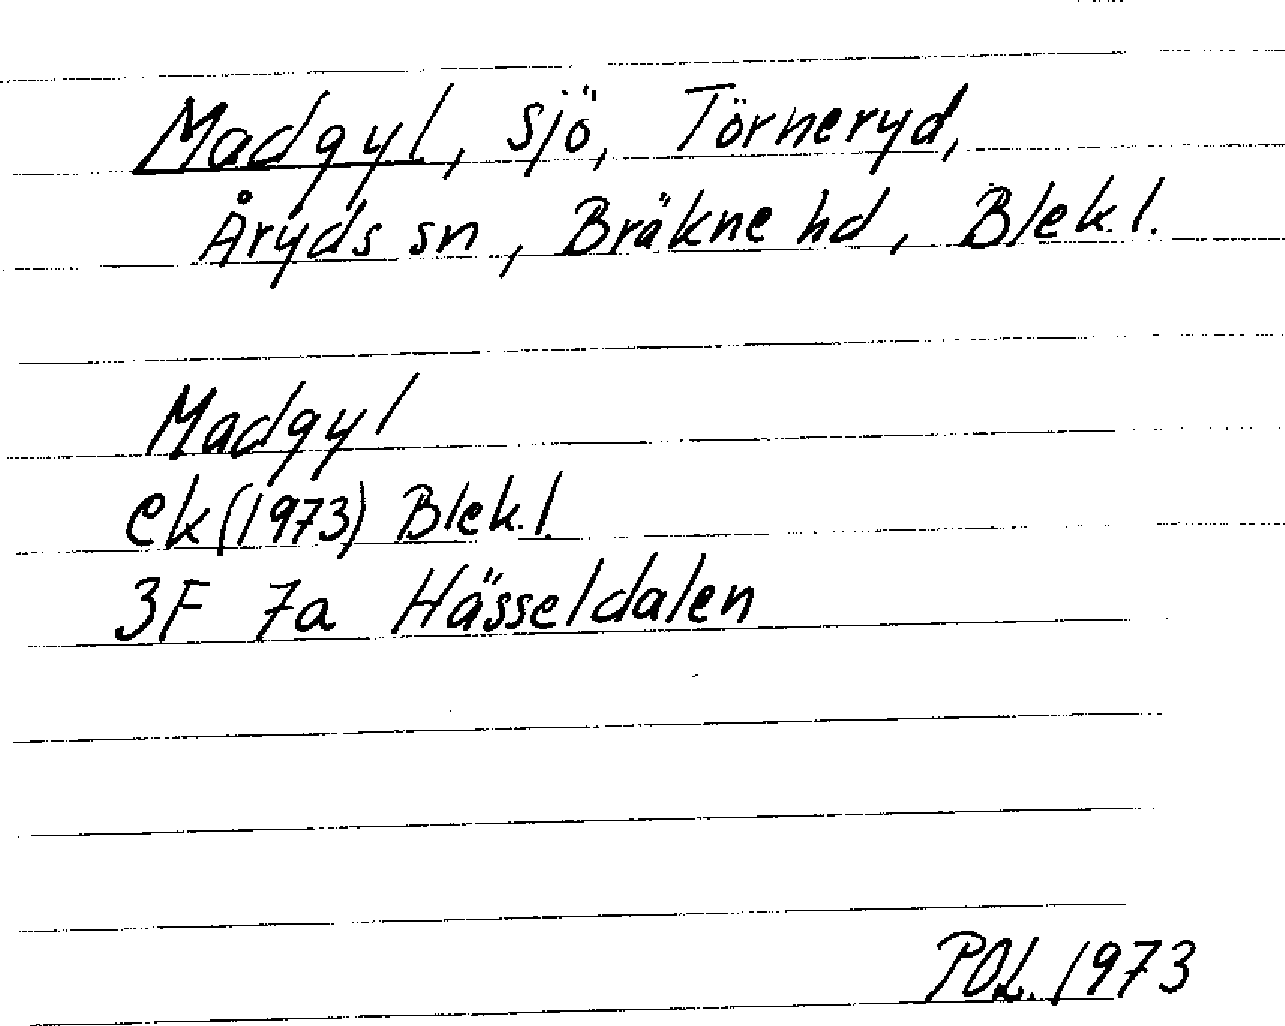 Madgyl, sjö, Törneryd,
Åryds sn, Bräkne hd, Blek.l.
Madgyl
ek (1973) Blek.l.
3F 7a Hässeldalen
POL. 1973